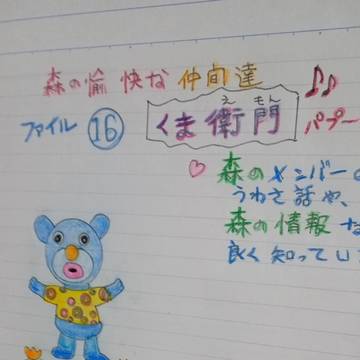 森の愉快な仲間達
ファイル 16 くま衛門 パプー
え もん
♡ 森のメンバーの
うわさ話や、
森の情報な
良く知ってい